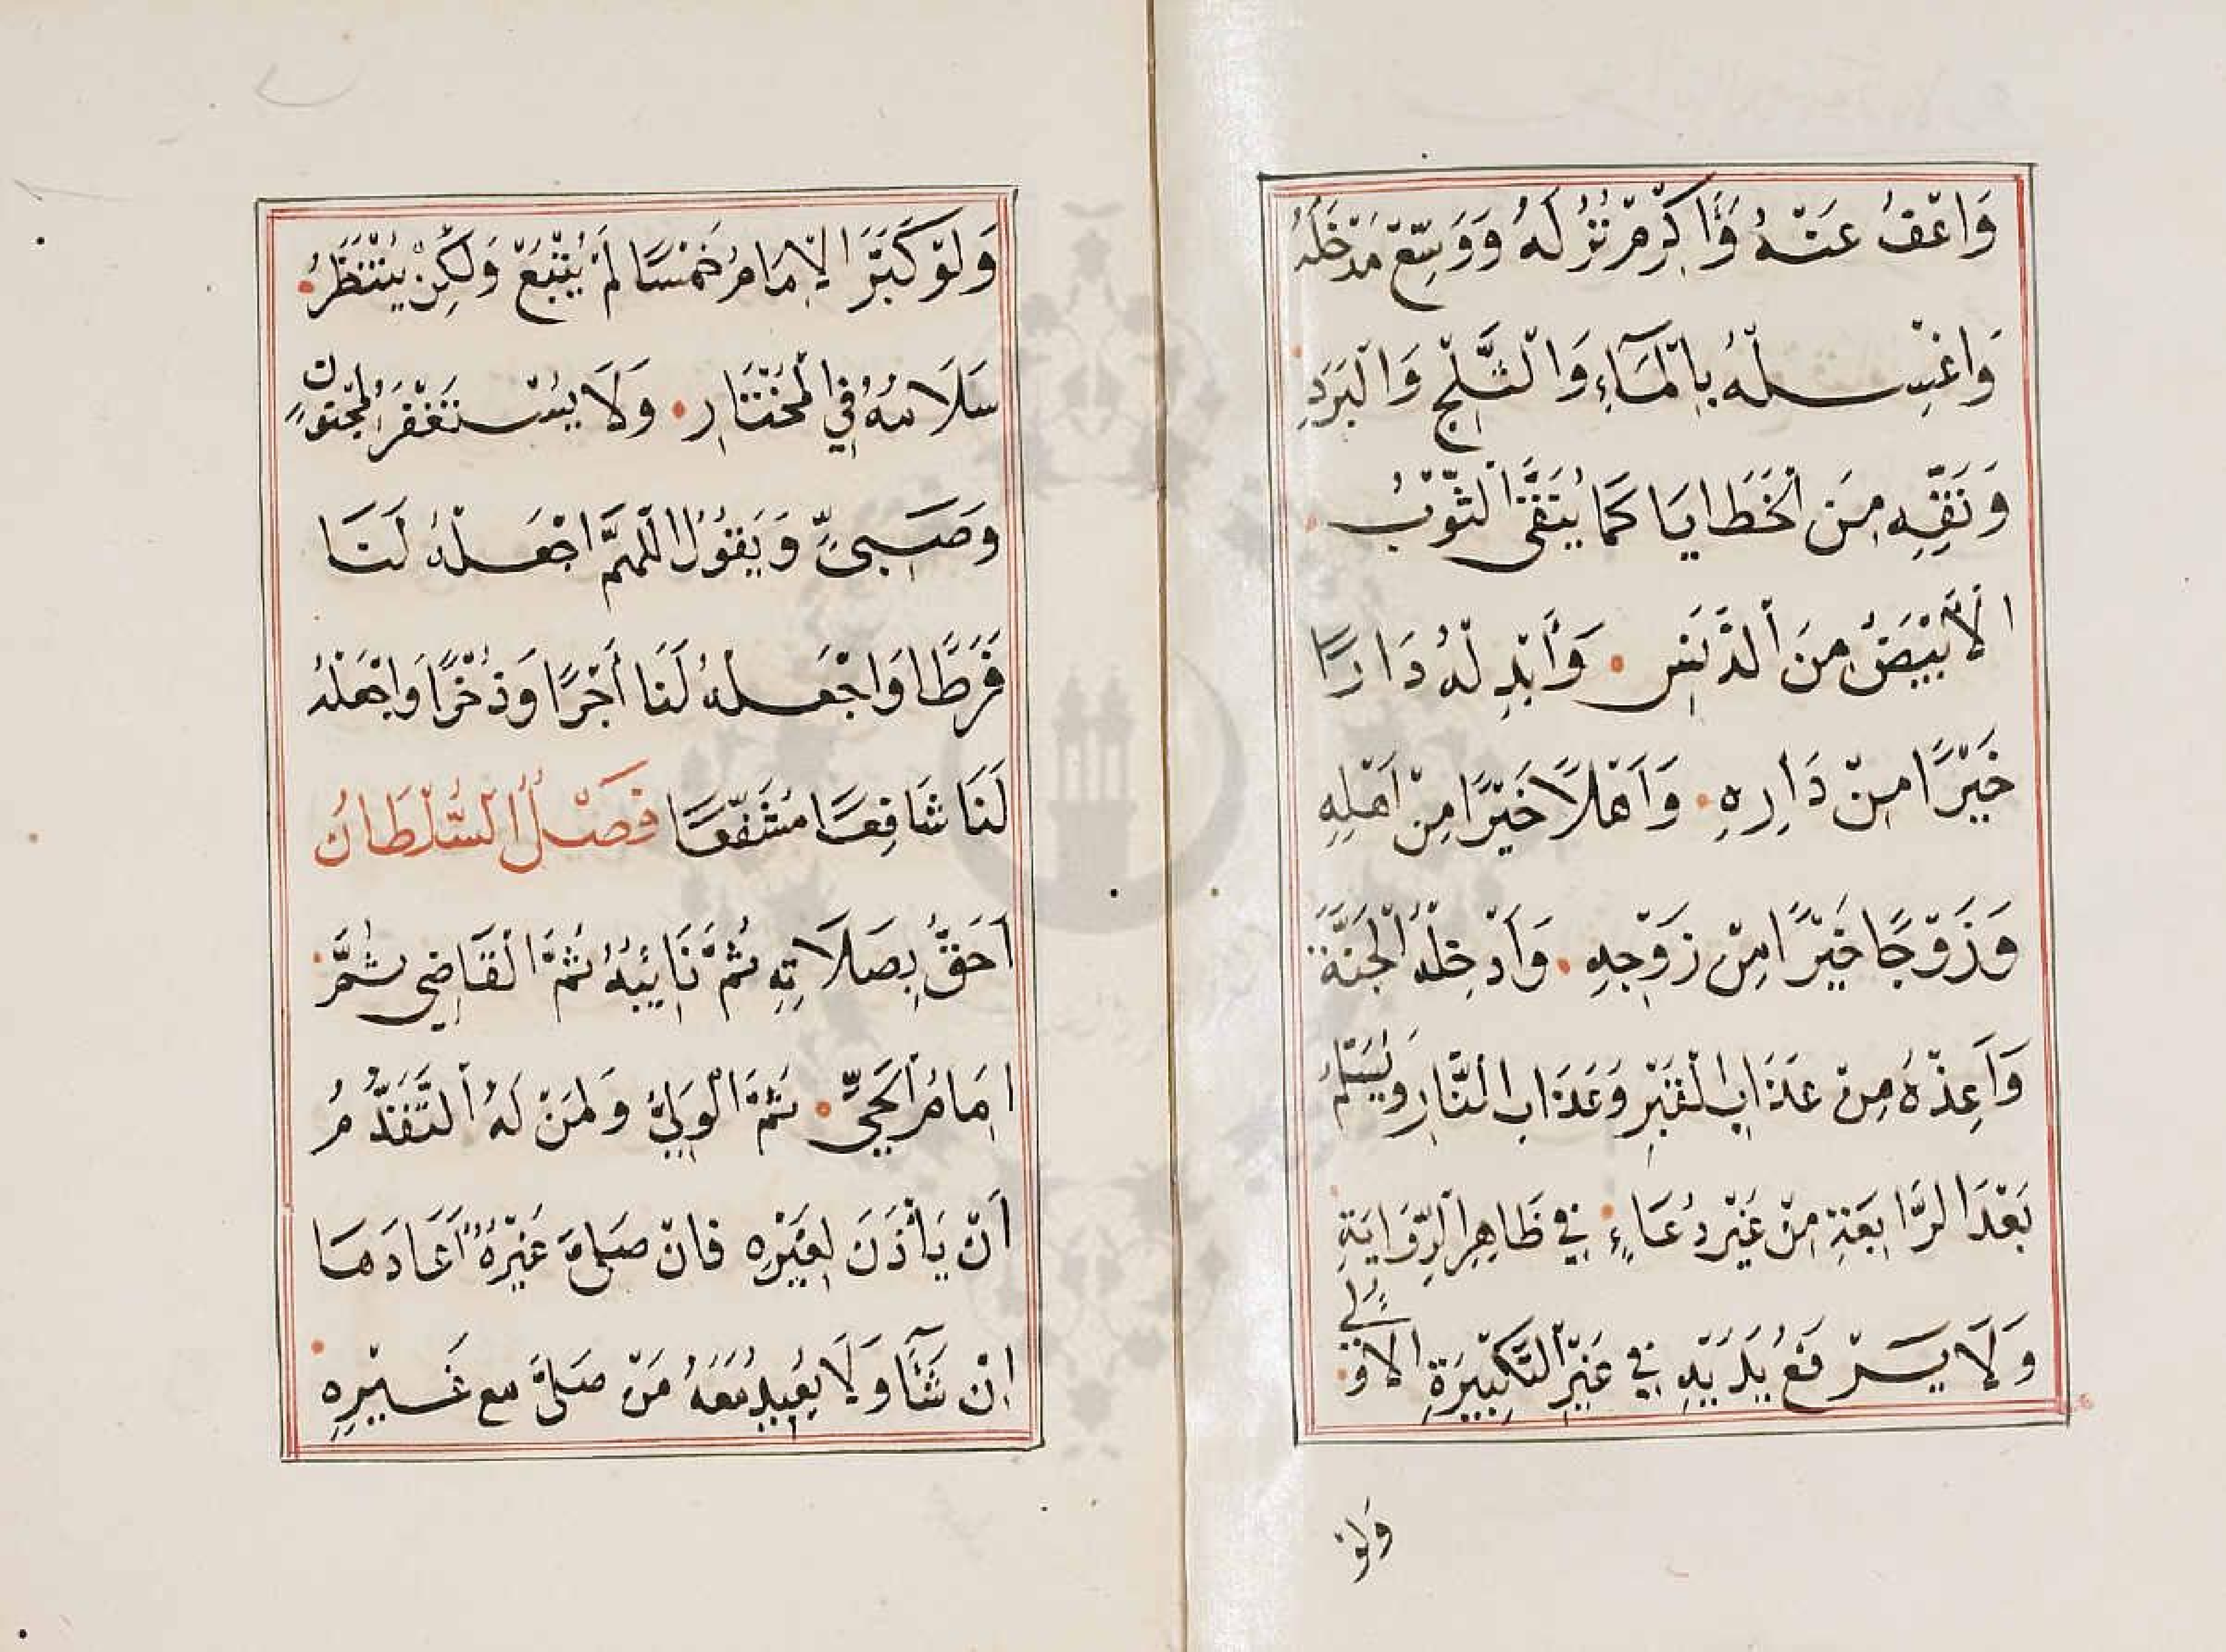 وَاعْفُ عَنْهُ وَأَكْرِمْ نُزُلَهُ وَوَسِّعْ مَدْخَلَهُ
وَاغْسِلْهُ بِالْمَآءِ وَالْثَّلْجِ وَالْبَرَدِ
وَنَقِّهِ مِنَ الْخَطَايَا كَمَا يُنَقَّى الْثَّوْبُ
الْأَبْيَضُ مِنَ الْدَّنَسِ وَأَبْدِلْهُ دَارًا
خَيْرًا مِنْ دَارِهِ وَاَهْلًا خَيْرًا مِنْ اَهْلِهِ
وَزَوْجًا خَيْرًا مِنْ زَوْجِهِ وَاَدْخِلْهُ الْجَنَّةَ
وَاَعِذْهُ مِنْ عَذَابِ الْقَبْرِ وَعَذَابِ الْنَّارِ وَيُسَلِّمُ
بَعْدَ الرَّابِعَةِ مِنْ غَيْرِ دُعَاءٍ فِي ظَاهِرِ الْرِّوَايَةِ
وَلَا يَرْفَعُ يَدَيْهِ فِي غَيْرِ الْتَّكْبِيْرَةِ الْاُوْلَى
وَلَوْ
وَلَوْ كَبَّرَ الْاِمَامُ خَمْسًا لَمْ يُتَّبَعْ وَلَكِنْ يُنْتَظَرُ
سَلَامُهُ فِي الْمُخْتَارِ وَلَا يُسْتَغْفَرُ لِمَجْنُوْنٍ
وَصَبِيٍّ وَيَقُوْلُ اللّٰهُمَّ اجْعَلْهُ لَنَا
فَرَطًا وَاجْعَلْهُ لَنَا أَجْرًا وَذُخْرًا وَاجْعَلْهُ
لَنَا شَافِعًا مُشَفَّعًا فَصْلٌ الْسُّلْطَانُ
اَحَقُّ بِصَلَاتِهِ ثُمَّ نَائِبُهُ ثُمَّ الْقَاضِي ثُمَّ
اِمَامُ الْحَيِّ ثُمَّ الْوَلِيُّ وَلِمَنْ لَهُ الْتَّقَدُّمُ
اَنْ يَأْذَنَ لِغَيْرِهِ فَانْ صَلَّى غَيْرُهُ اَعَادَهَا
اِنْ شَآءَ وَلَا يُعِيْدُ مَعَهُ مَنْ صَلَّى مع غَيْرِهِ